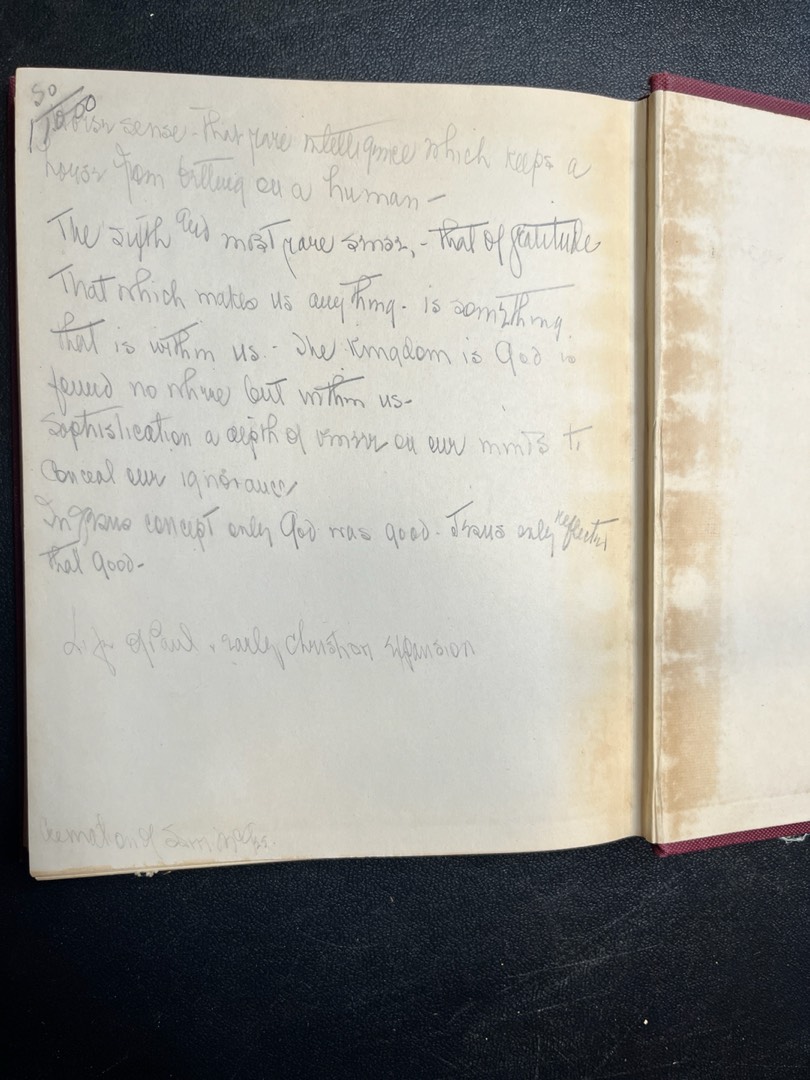 50
1000
Horse sense - that rare intelligence which keeps a
horse from betting on a human -
The sixth and most rare sense, - that of gratitude
That which makes us anything - is something
that is within us. - The Kingdom is God is
found no where but within us -
Sophistication a depth of on our minds to
conceal our ignorance
In Jesus concept only God was good - Jesus only reflected
that good -
Life of Paul . early Christian expansion
of